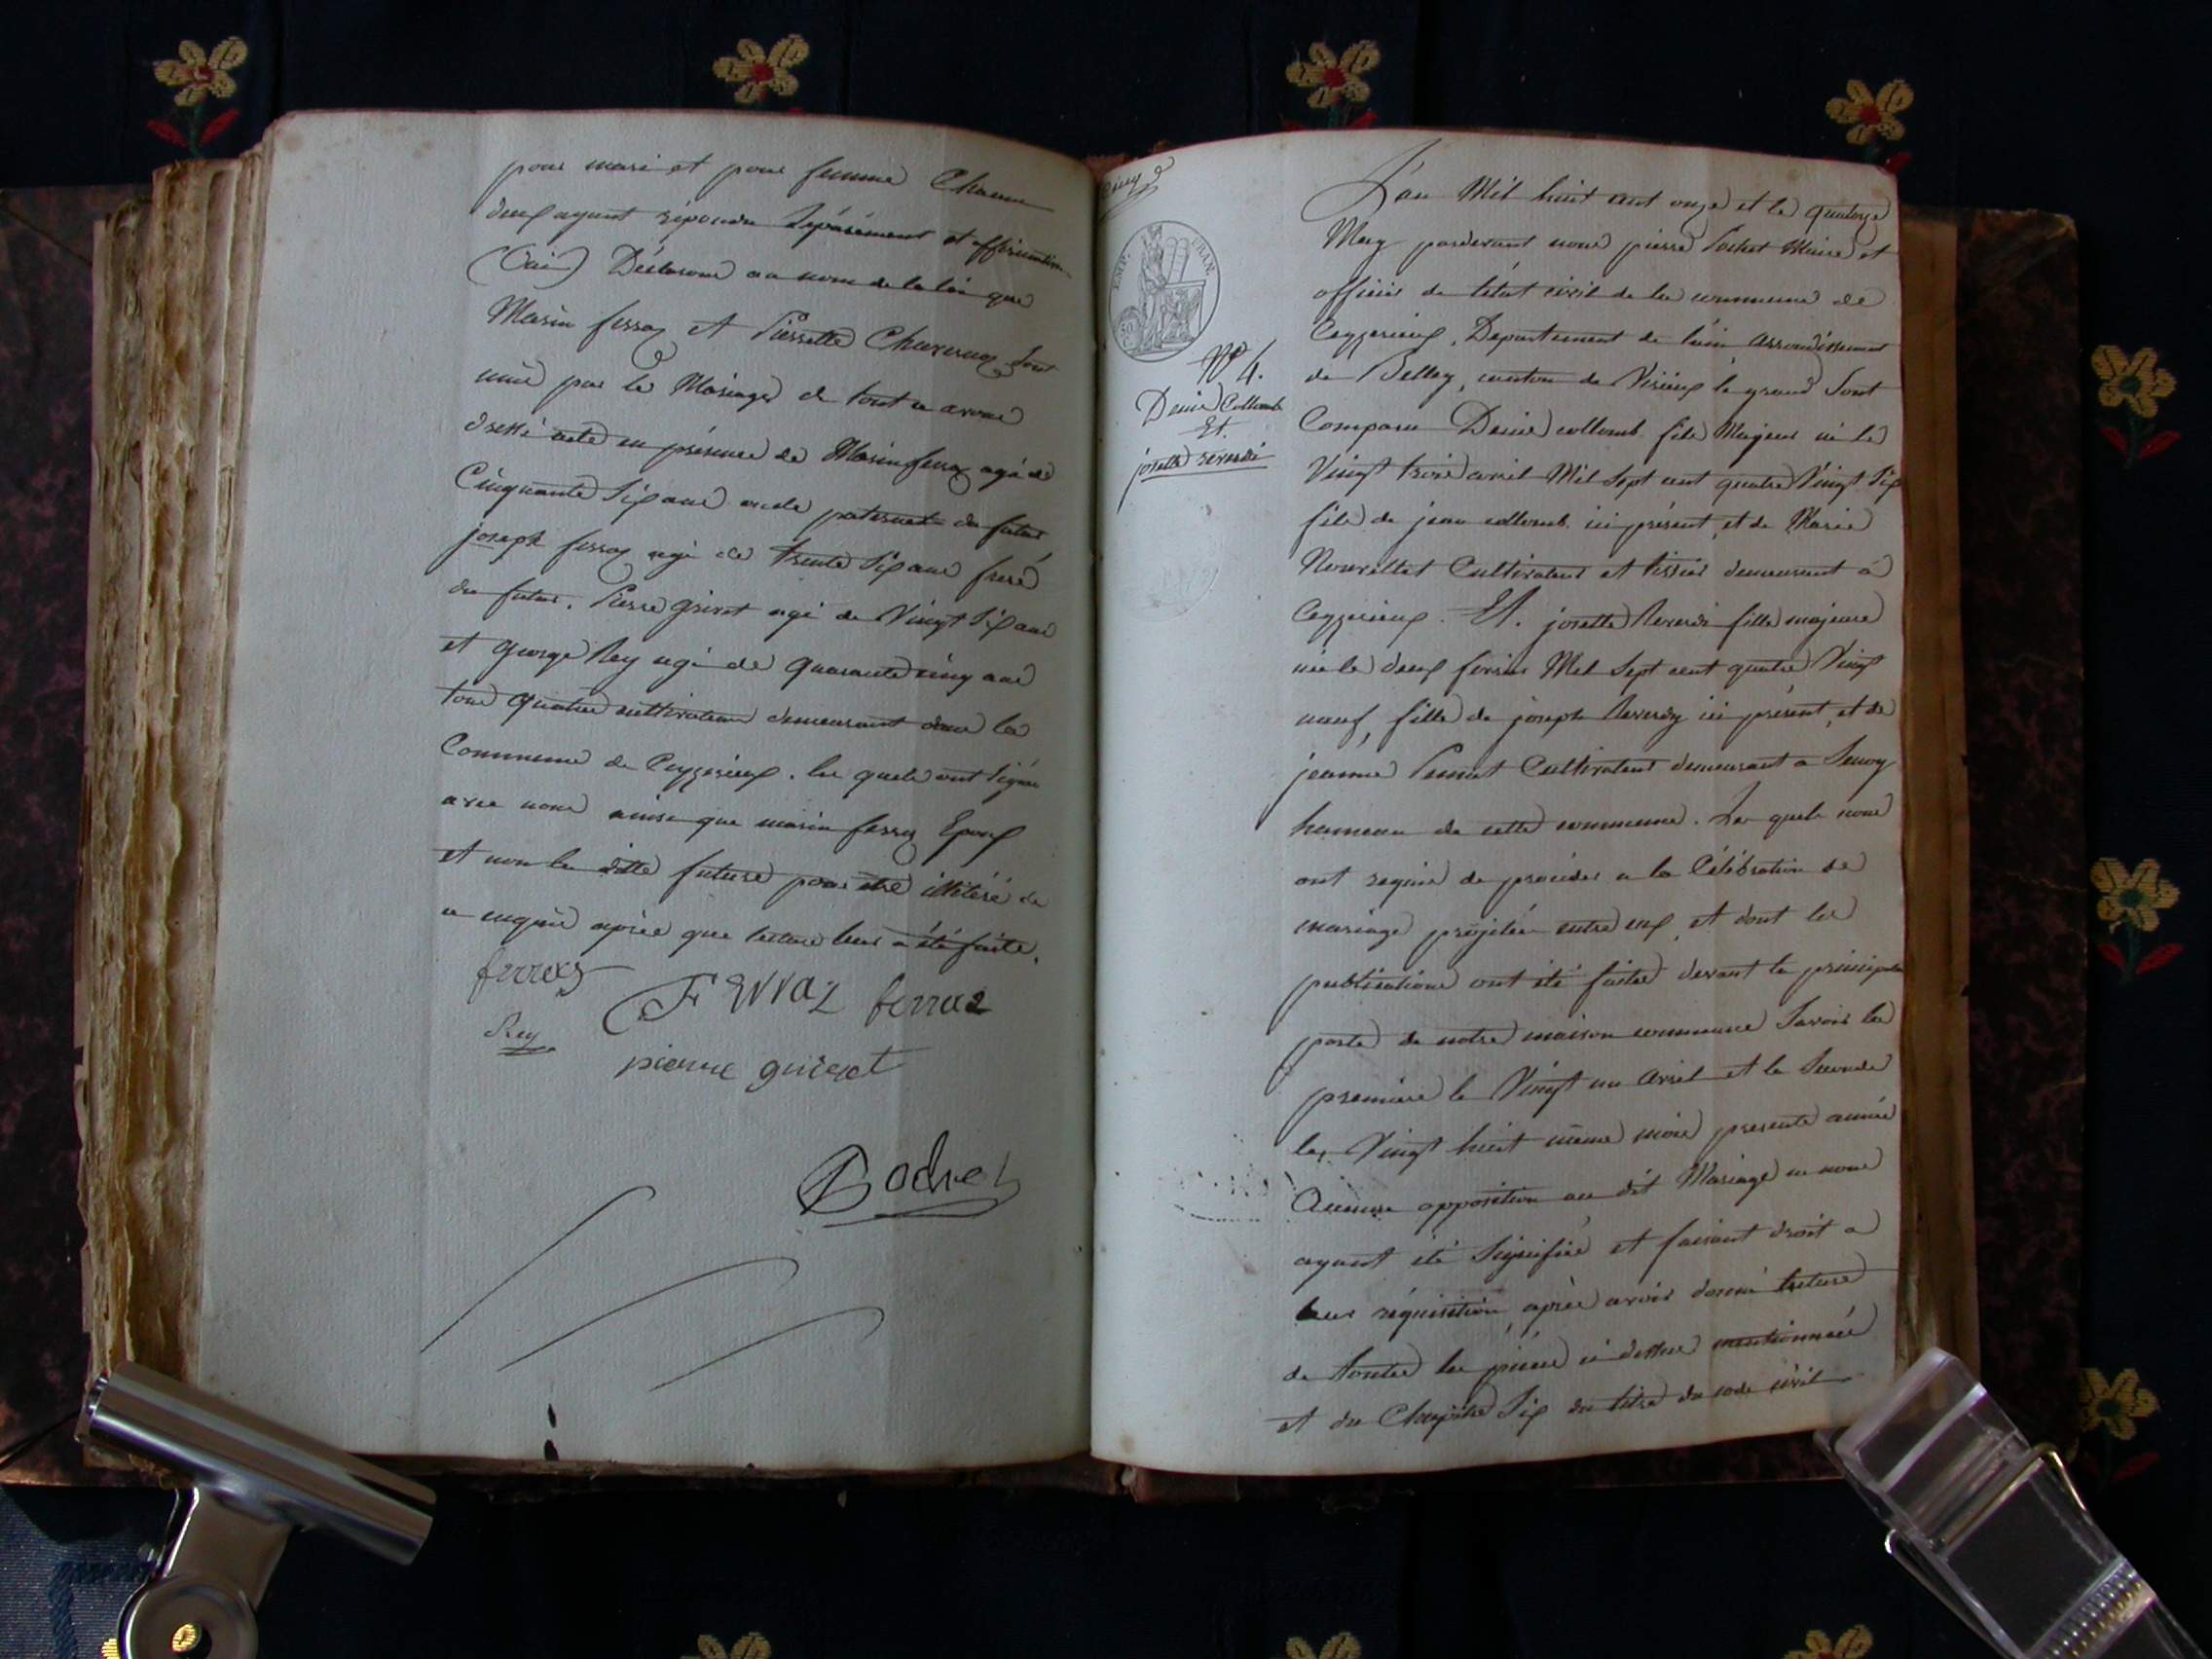 pour mari et pour femme Chacun
deux ayant répondu Séparément et affirmativem.
(Oui) Déclarons au nom de la loi que
Marin ferraz et Pierrette Charveraz Sont
unis par le Mariage de tout a avons
dressé acte en présence de Marin ferraz agé de
Cinquante Six ans oncle paternel du futur
joseph ferraz agé de trente Six ans freré
du futur. Pierre guirot agé de Vingt Six ans
et george Rey agé de quarante cinq ans
tous quatre cultivateurs demeurant dans la
Commune de Ceyzerieux. les quels ont Signé
avec nous ainsi que marin ferraz Epoux
et non la ditte future pour etre illitéré de
a enquis après que lecture leur a été faite.
ferraz
Ferraz ferraz
Rey
pierre guirot
Pochet
EMP. FRAN.
50 C.
N° 4.
Denis Collomb
Et.
josette reverdi
L'an Mil huit cent onze et le quatorze
May pardevant nous pierre Pochet Maire et
officier de l'état civil de la commune de
Ceyzerieux, Departement de l'ain arrondissement
de Belley, canton de Virieux le grand Sont
Comparu Denis collomb fils Majeur né le
Vingt trois avril Mil Sept cent quatre Vingt Six
fils de jean collomb ici présent, et de Marie
Nouvellet Cultivateurs et tissier demeurant à
Ceyzerieux. Et. josette Reverdi fille majeure
née le deux fevrier Mil Sept cent quatre Vingt
neuf, fille de joseph Reverdy ici présent, et de
jeanne Cultivateurs demeurant a
hameau de cette commune. Les quels nous
ont requis de procéder a la Célébration de
mariage projetée entre eux, et dont les
publications ont été faites devant la principale
porte de notre maison commune Savoir la
premiere le Vingt un Avril et la Seconde
le Vingt huit même mois presente année
Aucune opposition au dit Mariage ne nous
ayant été Signifiée et faisant droit a
leur réquisition, après avoir donné lecture
de toutes les pièces ci dessus mentionnées
et du Chapitre Six du titre du code civil